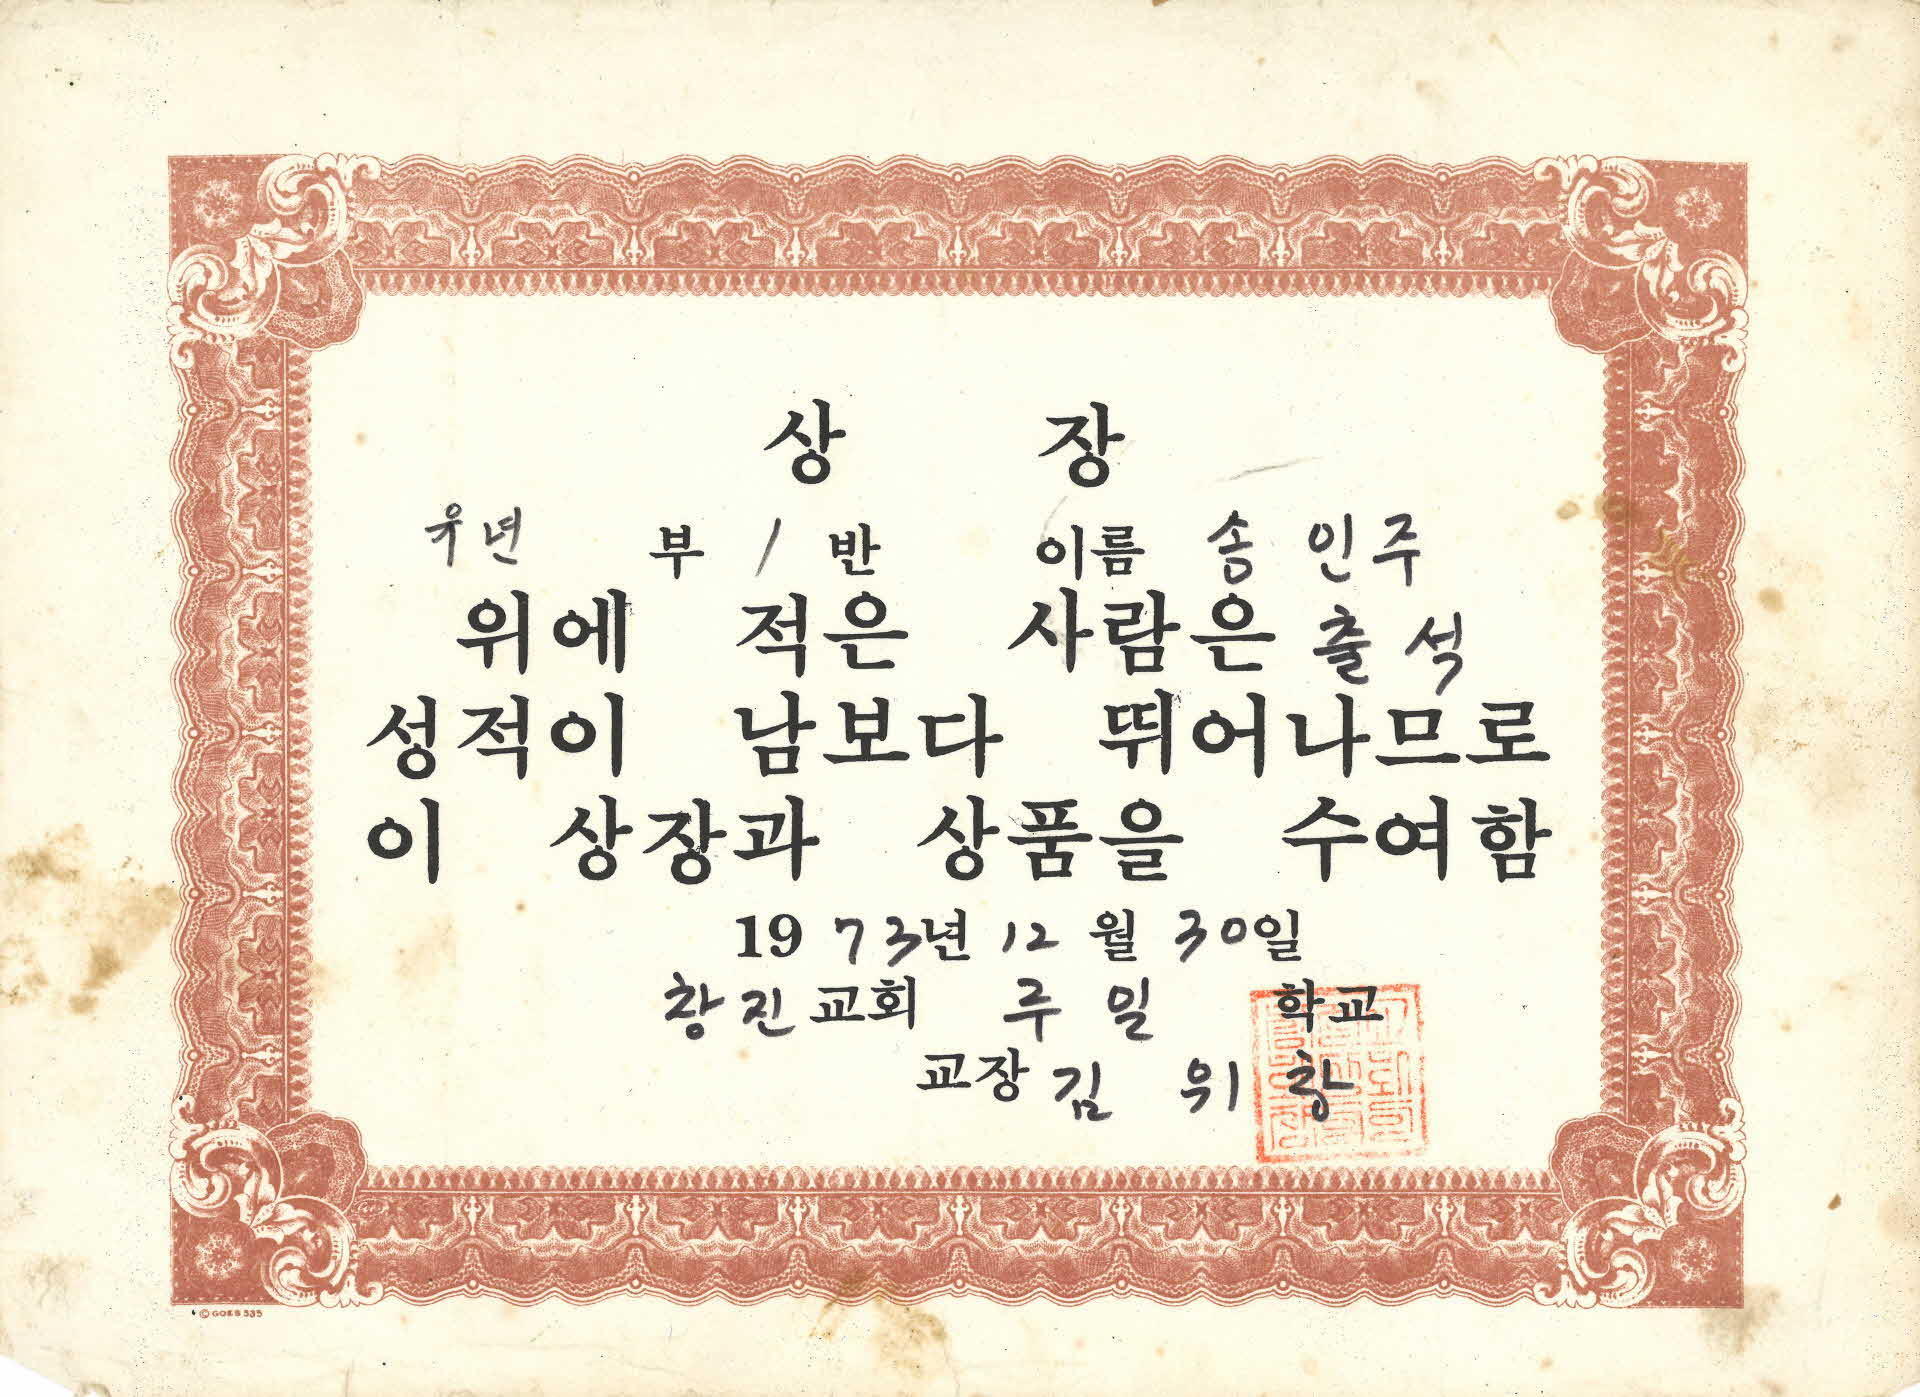 상 장
유년 부 1 반 이름 송 인 주
위에 적은 사람은 출 석
성적이 남보다 뛰어나므로
이 상장과 상품을 수여함
19 73년 12 월 30일
창진 교회 주 일 학교
교장 김 위 창
© GOES 535